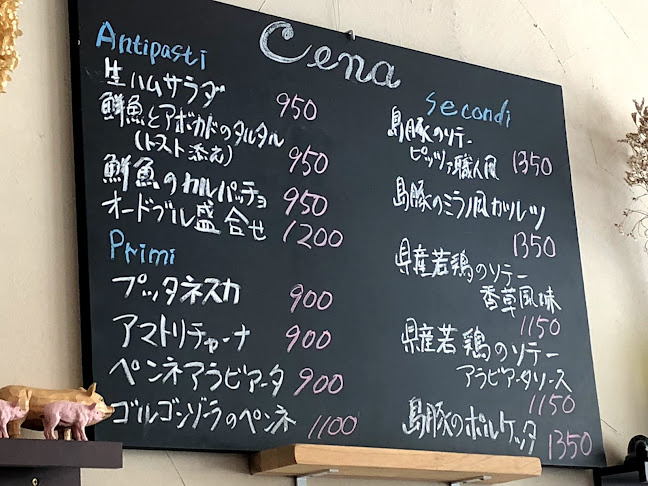 Cena
Antipasti
生ハムサラダ 950
鮮魚とアボカドのタルタル
(トースト添え) 950
鮮魚のカルパッチョ 950
オードブル盛合せ 1200
Primi
プッタネスカ 900
アマトリチャーナ 900
ペンネアラビアータ 900
ゴルゴンゾーラのペンネ 1100
Secondi
島豚のソテー
ピッツァ職人風 1350
島豚のミラノ風カツレツ
1350
県産若鶏のソテー
香草風味
1150
県産若鶏のソテー
アラビアータソース
1150
島豚のポルケッタ 1350